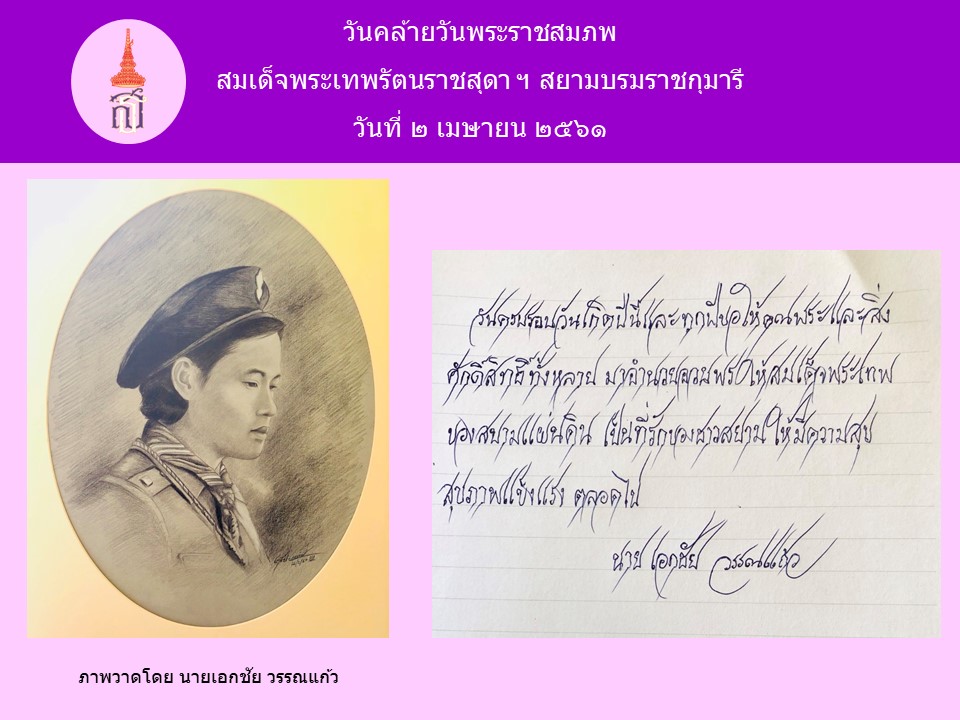 วันคล้ายวันพระราชสมภพ
สมเด็จพระเทพรัตนราชสุดา ฯ สยามบรมราชกุมารี
วันที่ ๒ เมษายน ๒๕๖๑
วันครบรอบวันเกิดปีนี้และทุกปีขอให้คุณพระและสิ่ง
ศักดิ์สิทธิ์ทั้งหลาย มาอำนวยอวยพรให้สมเด็จพระเทพ
ของสยามแผ่นดิน เป็นที่รักของชาวสยาม ให้มีความสุข
สุขภาพแข็งแรง ตลอดไป
นาย เอกชัย วรรณแก้ว
ภาพวาดโดย นายเอกชัย วรรณแก้ว